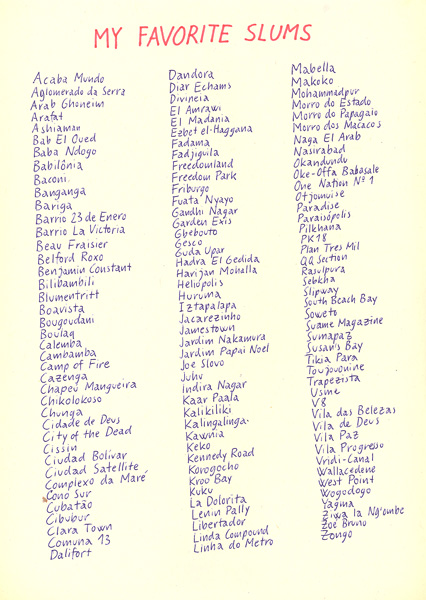 MY FAVORITE SLUMS
Acaba Mundo
Aglomerado da Serra
Arab Ghoneim
Arafat
Ashiaman
Bab El Oued
Baba Ndogo
Babilônia
Baconi
Banganga
Bariga
Barrio 23 de Enero
Barrio La Victoria
Beau Fraisier
Belford Roxo
Benjamin Constant
Bilibambili
Blumentritt
Boavista
Bougoudani
Boulaq
Calemba
Cambamba
Camp of Fire
Cazenga
Chapéu Mangueira
Chikolokoso
Chunga
Cidade de Deus
City of the Dead
Cissin
Ciudad Bolívar
Ciudad Satellite
Complexo da Maré
Cono Sur
Cubatão
Cibubur
Clara Town
Comuna 13
Dalifort
Dandora
Diar Echams
Divineia
El Amrawi
El Madania
Eebet el-Haggana
Fadama
Fadjiguila
Freedomland
Freedom Park
Friburgo
Fuata Nyayo
Gandhi Nagar
Garden Exis
Gbebouto
Gesco
Guda Upar
Hadra El Gedida
Harijan Mohalla
Heliópolis
Huruma
Iztapalapa
Jacarezinho
Jamestown
Jardim Nakamura
Jardim Papai Noel
Joe Slovo
Juhu
Indira Nagar
Kaar Paala
Kalikiliki
Kalingalinga
Kawnia
Keko
Kennedy Road
Korogocho
Kroo Bay
Kuku
La Dolorita
Lenin Pally
Libertador
Linda Compound
Linha do Metro
Mabella
Makoko
Mohammadpur
Morro do Estado
Morro do Papagaio
Morro dos Macacos
Naga El Arab
Nasirabad
Okandundu
Oke-Offa Babasale
One Nation Nº 1
Otjomuise
Paradise
Paraisópolis
Pilkhana
PK18
Plan Tres Mil
QQ Section
Rasulpura
Sebkha
Slipway
South Beach Bay
Soweto
Suame Magazine
Sumapaz
Susan's Bay
Tikia Para
Toujouonine
Trapezista
Usme
V8
Vila das Belezas
Vila de Deus
Vila Paz
Vila Progresso
Vridi-Canal
Wallacedene
West Point
Wogodogo
Yagma
Ziwa la Ng'ombe
Zoe Bruno
Zongo